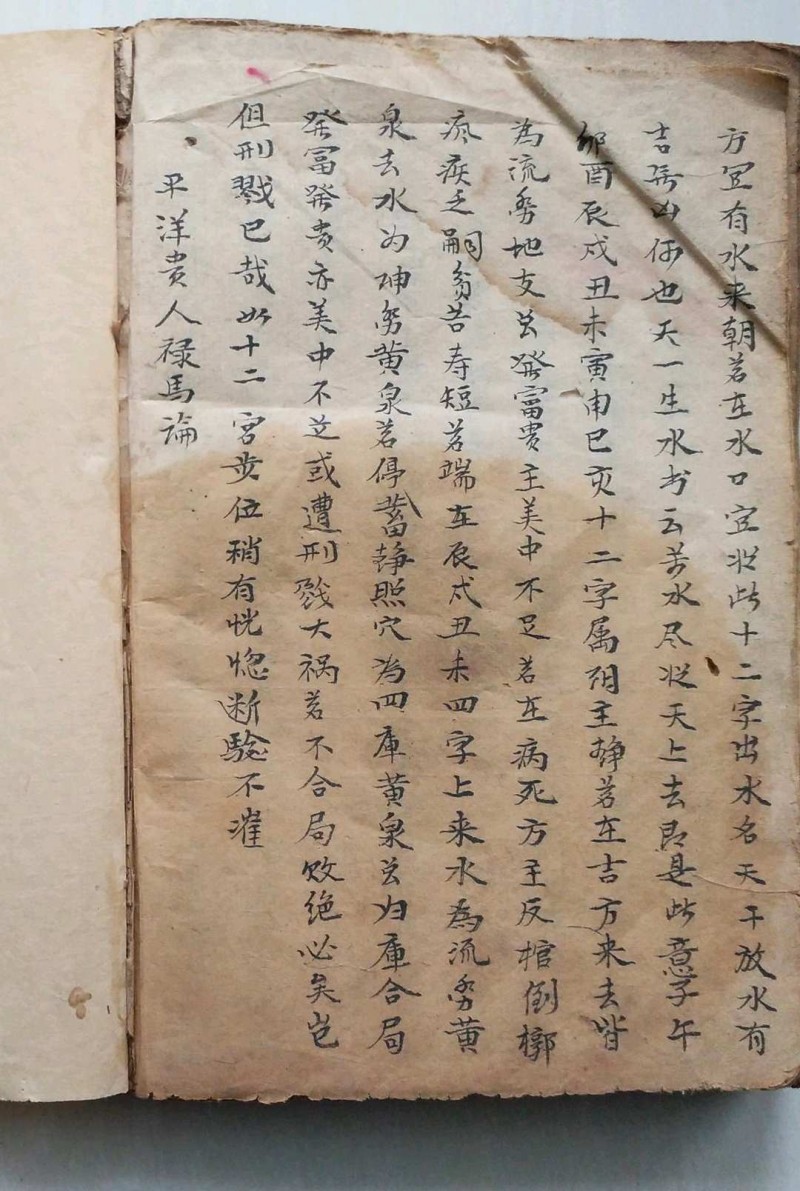 方宜有水来朝若在水口宜从此十二字出水名天干放水有
吉無凶何也天一生水书云若水尽从天上去即是此意子午
卯酉辰戌丑未寅申巳亥十二字属阴主静若在吉方来去皆
為流地支발發富贵主美中不足若在病死方主反棺倒槨
疾乏嗣貧苦寿短若端在辰戌丑未四字上来水為流黄
泉去水为坤黄泉若停蓄静照穴為四庫黄泉归庫合局
發富發贵亦美中不足或遭刑戮大祸若不合局败绝必矣岂
但刑戮已哉此十二宮步位稍有恍惚断驗不准
平洋贵人禄馬論